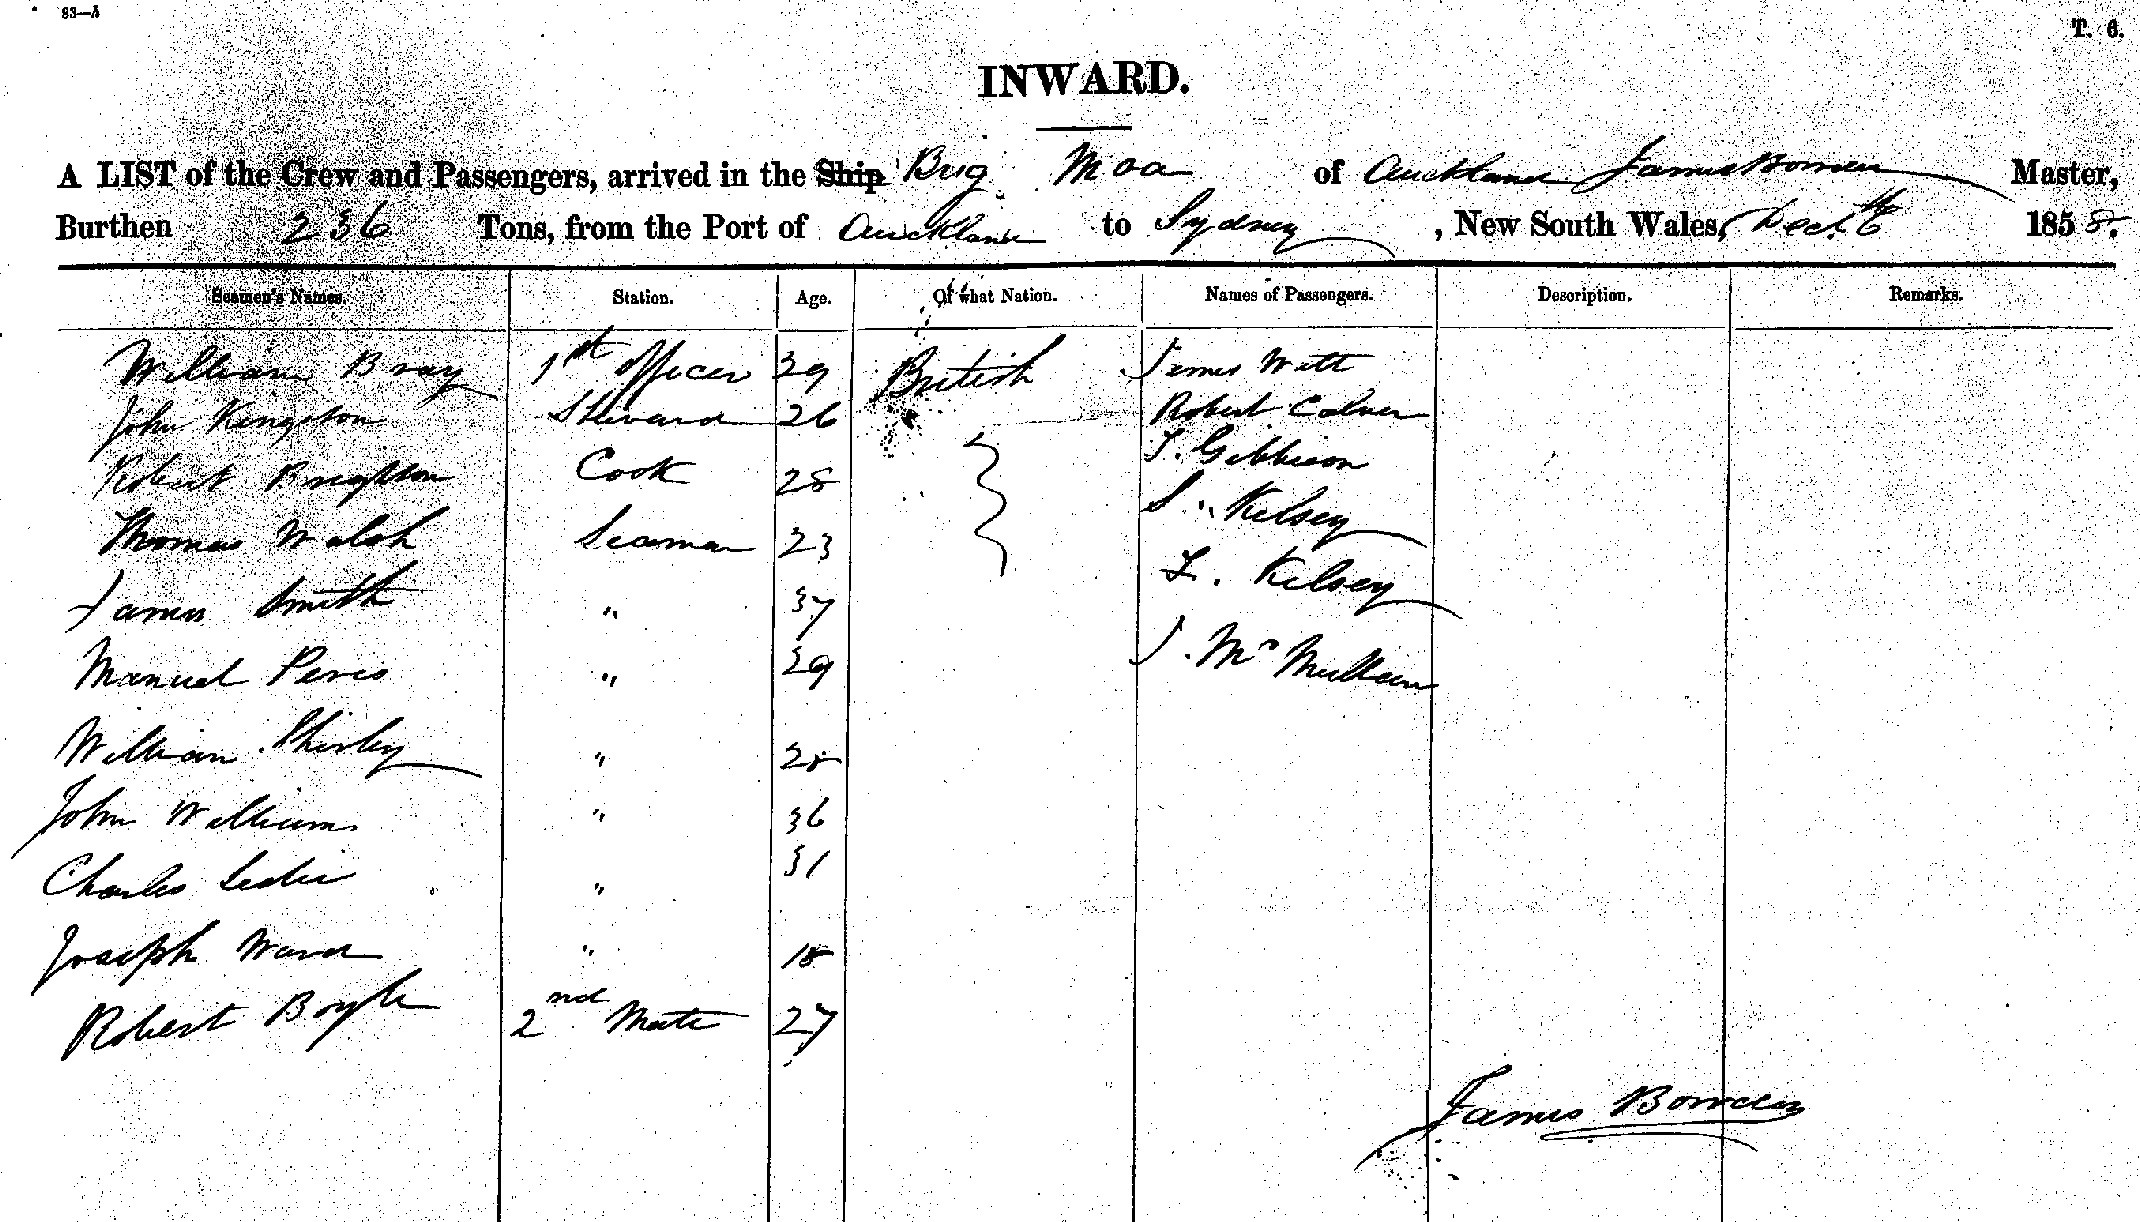 83—A
T. 6.
INWARD.
A LIST of the Crew and Passengers, arrived in the Ship Brig Moa of Auckland James Bowden Master,
Burthen 236 Tons, from the Port of Auckland to Sydney, New South Wales, Dec. 6th 1858.
Seamen's Names. Station. Age. Of what Nation. Names of Passengers. Description. Remarks.
William Bray 1st Officer 39 British James Watt
John Kingston Steward 26 Robert
Robert Cook 28 J. Gibbison
Thomas Walsh Seaman 23 S " Kelsey
James Smith " 37 Kelsey
Manuel Peres " 39 J. McMullen
William Shirley " 28
John Williams " 36
Charles Leslie " 31
Joseph Ward " 18
Robert Boyle 2nd Mate 27
James Bowden